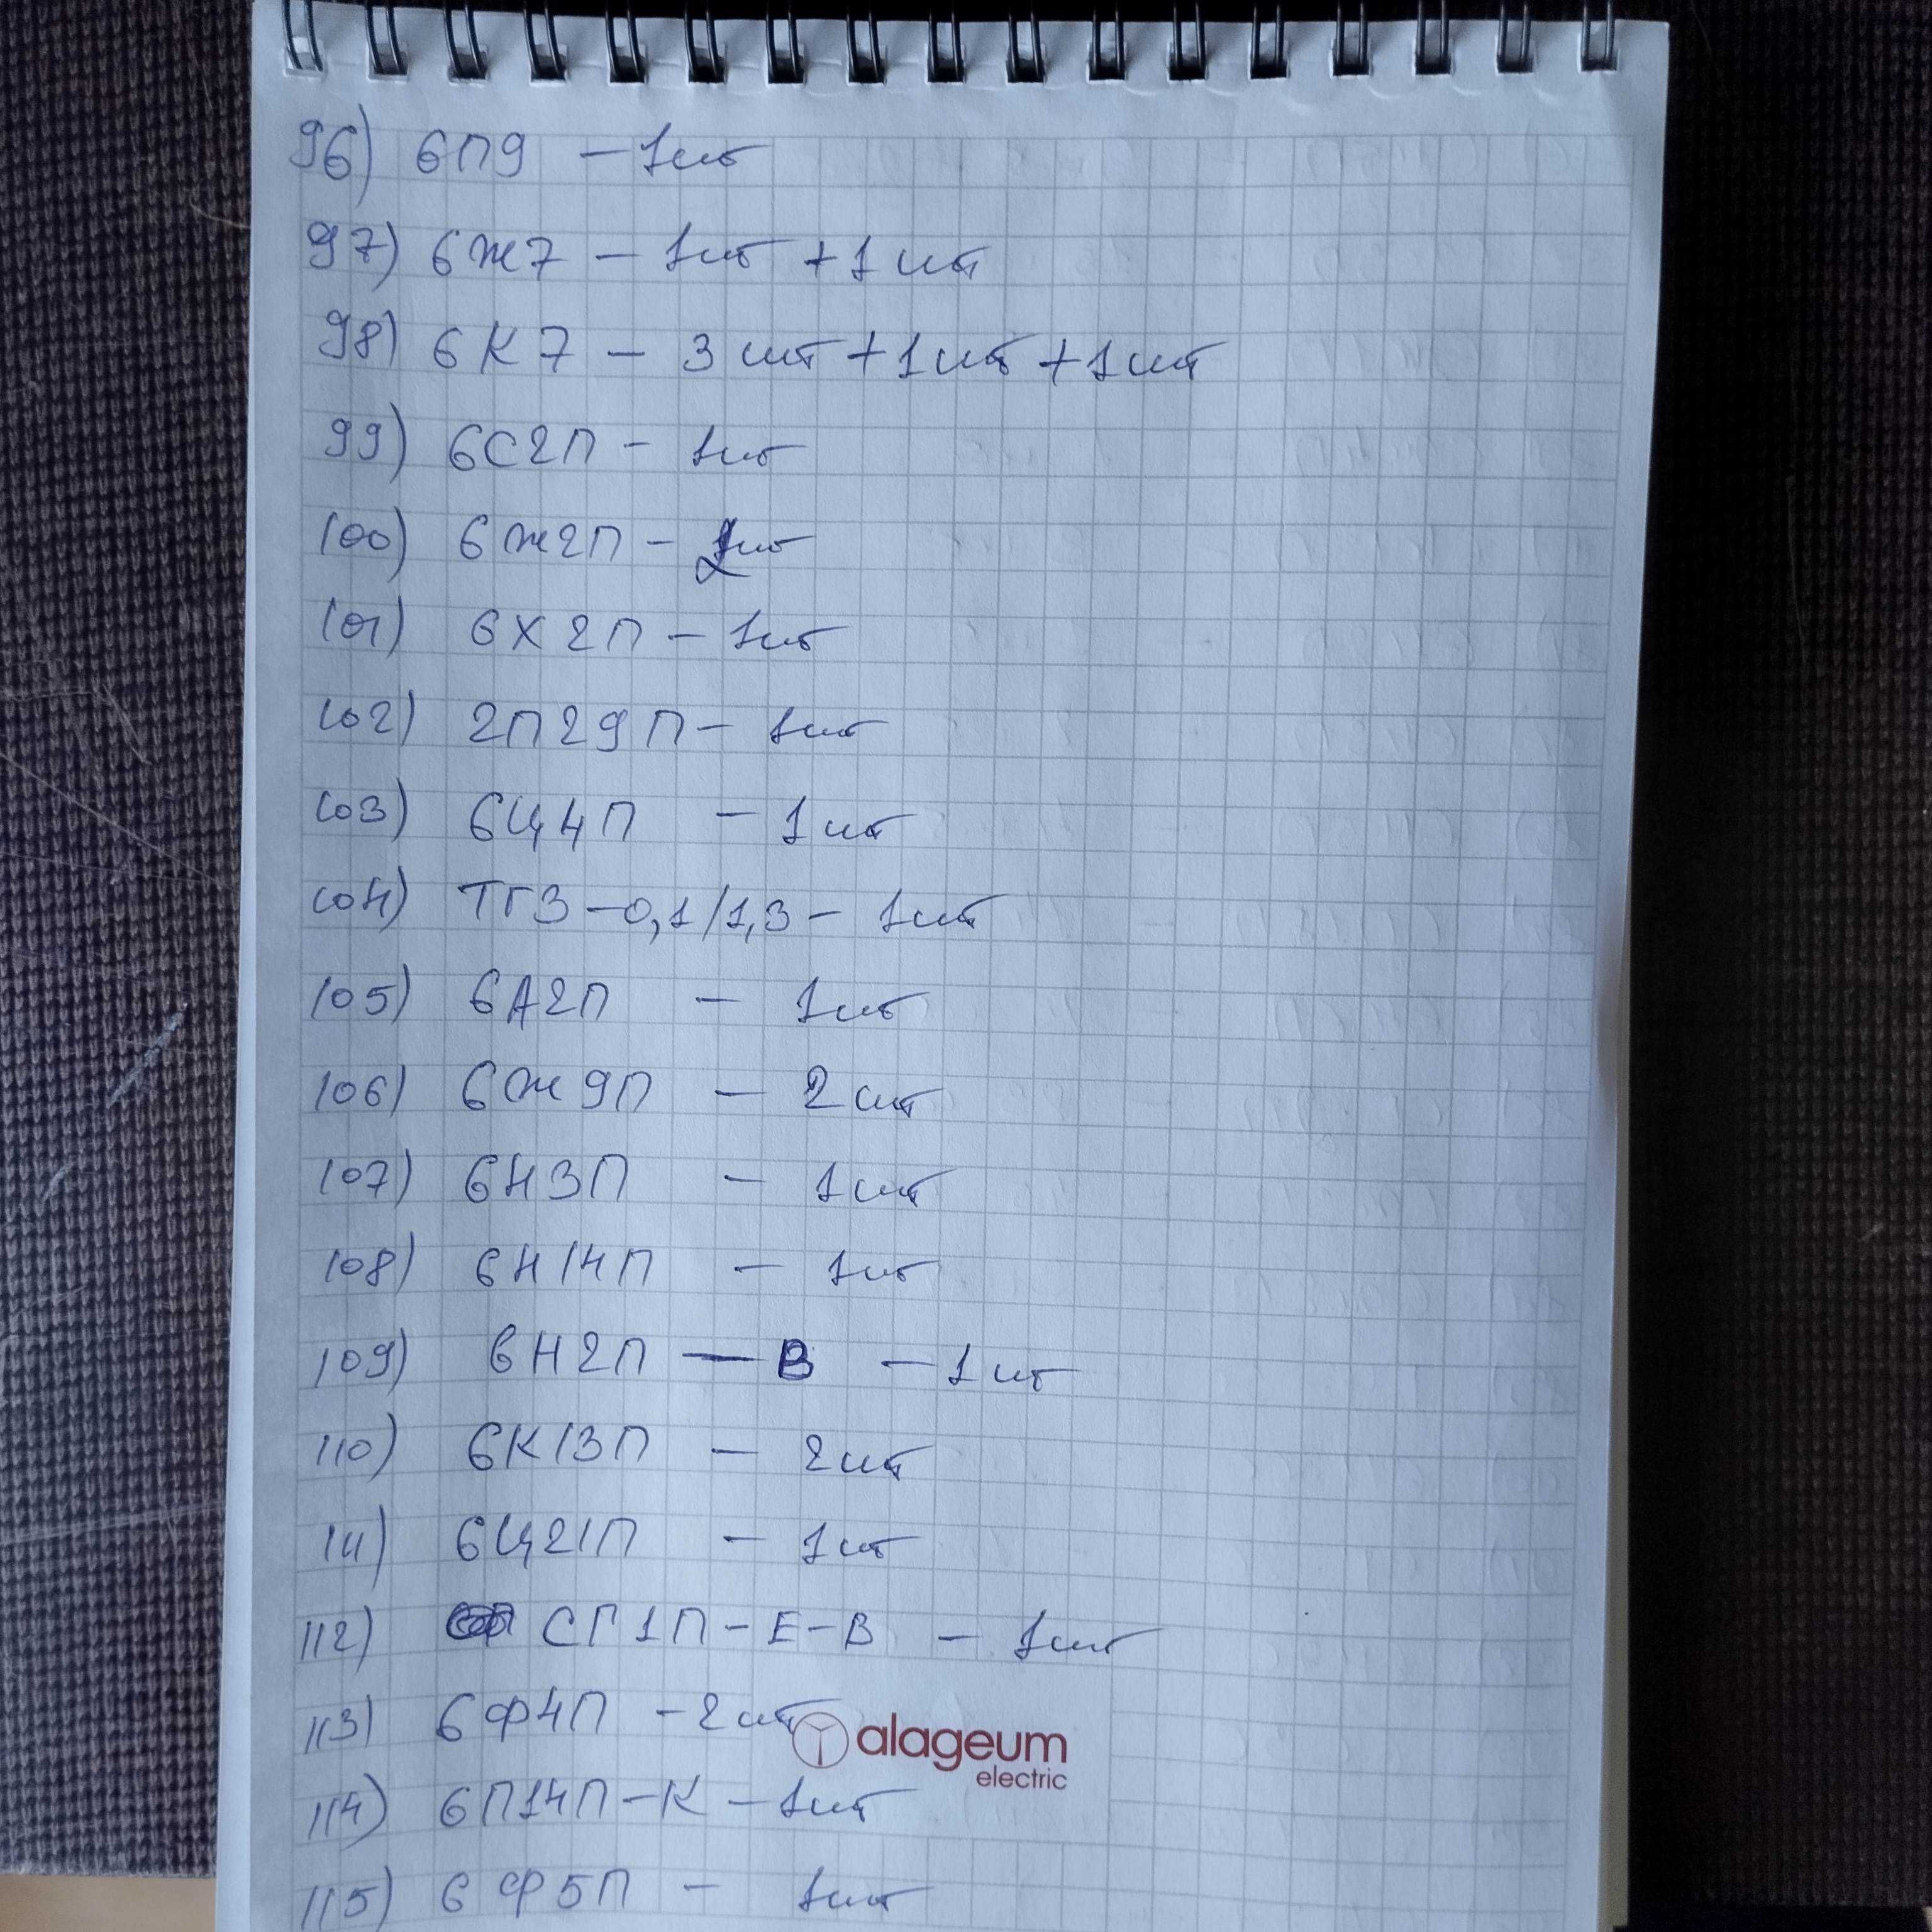 96) 6П9 – 1шт
97) 6Ж7 – 1шт + 1шт
98) 6К7 – 3шт + 1шт + 1шт
99) 6С2П – 1шт
100) 6Ж2П – 2шт
101) 6Х2П – 1шт
102) 2П29П – 1шт
103) 6Ц4П – 1шт
104) ТГ3-0,1/1,3 – 1шт
105) 6А2П – 1шт
106) 6Ж9П – 2шт
107) 6Н3П – 1шт
108) 6Н14П – 1шт
109) 6Н2П – В – 1шт
110) 6К13П – 2шт
111) 6Ц21П – 1шт
112) СГ1П-Е-В – 1шт
113) 6Ф4П – 2шт
alageum
electric
114) 6П14П-К – 1шт
115) 6Ф5П – 1шт